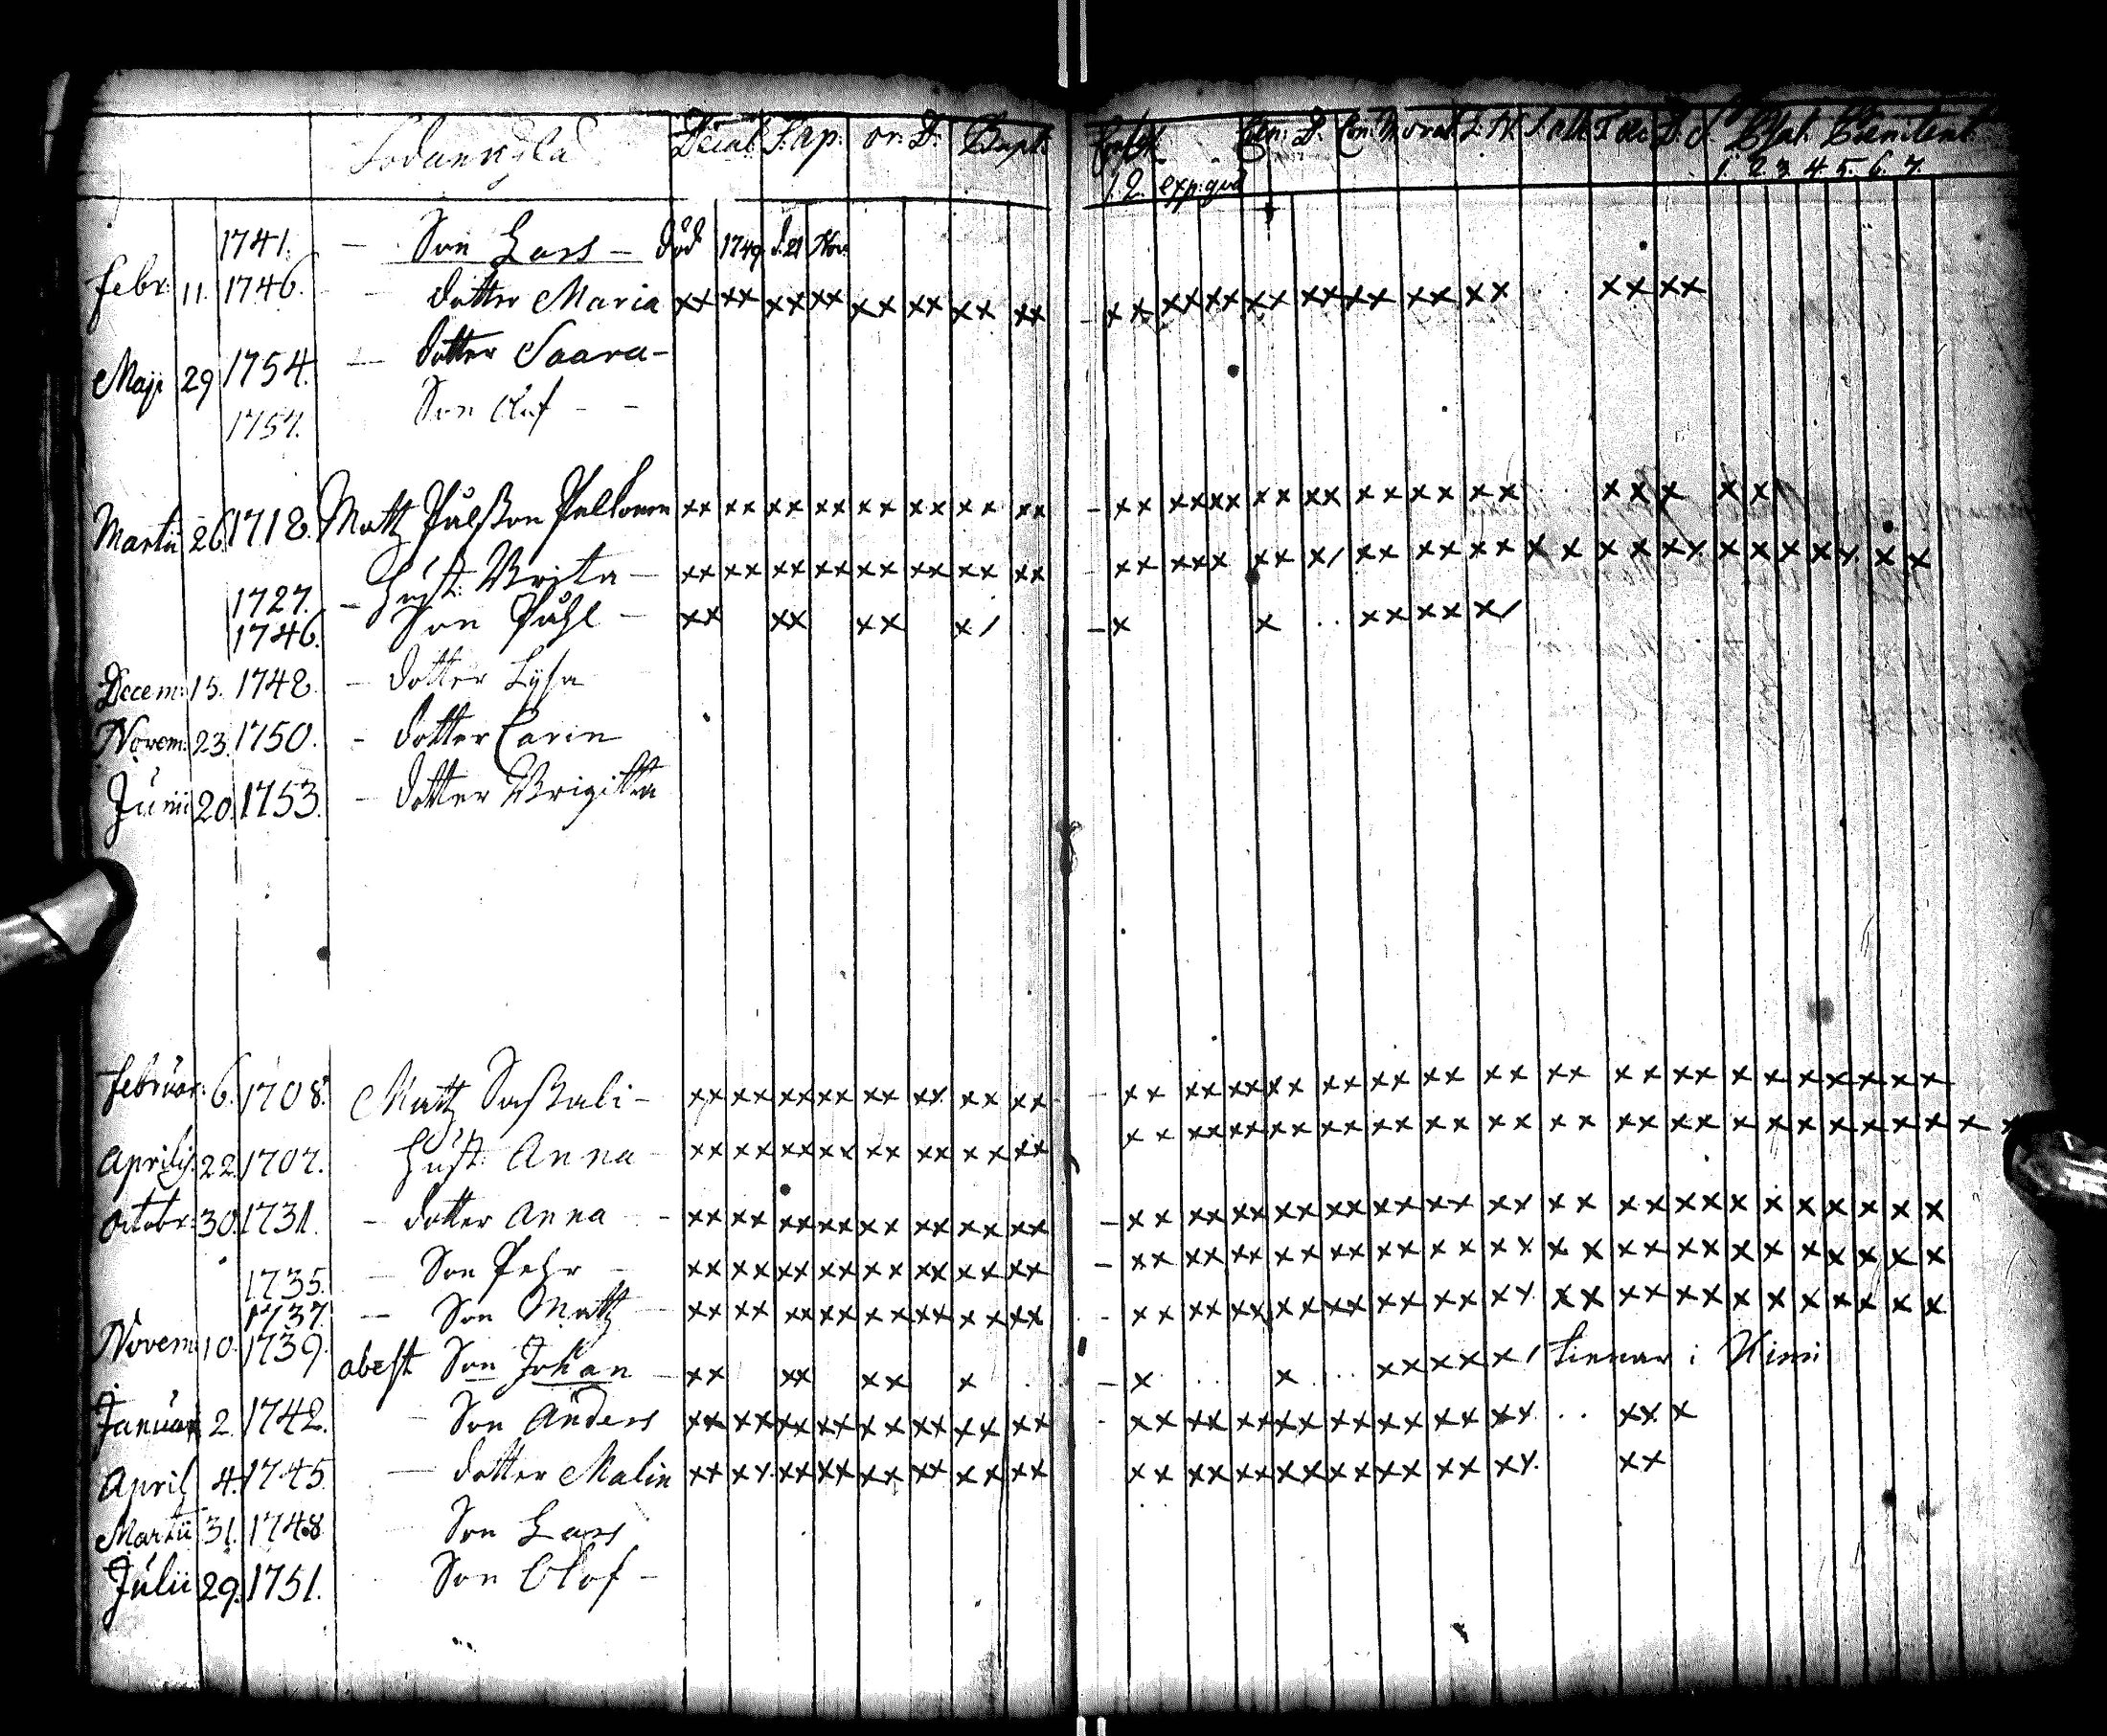 Sodankylä Decal. S. Ap. or. D. Bapt. Confess. Cœn. D. Con. Morat. T. ae. D. S. Psal. Pœnitent.
1. 2. exp: qvæ 1. 2. 3. 4. 5. 6. 7.
1741. — Son Lars — död 1749 d. 21 Nov.
Febr. 11. 1746. — dotter Maria xx xx xx xx xx xx xx xx – xx xx xx xx xx xx xx xx . . xx xx
Maji 29 1754. — dotter Saara —
1757. Son Oluf - -
Martii 26. 1718. Matz Pålsson Pelkonen xx xx xx xx xx xx xx xx – xx xx xx xx xx xx xx xx . . xx x x x
1727. — Hust. Brita — xx xx xx xx xx xx xx xx – xx xx x xx x/ xx xx xx x x x x xx x x x x x x x
1746. Son Påhl — xx xx xx x/ – x x . . xx xx x/
Decem: 15. 1748. — dotter Lysa
Novem: 23. 1750. - dotter Carin
Junii 20. 1753. — dotter Brigitta
Februar: 6. 1708. Matz Saßali — xx xx xx xx xx xx xx xx – xx xx xx xx xx xx xx xx xx xx xx x x x x x x x
Aprilis. 22. 1707. Hust. Anna — xx xx xx xx xx xx xx xx xx xx xx xx xx xx xx xx xx xx xx x x x x x x x x
Octobr: 30. 1731. - dotter Anna - - xx xx xx xx xx xx xx xx – xx xx xx xx xx xx xx xx xx xx xx x x x x x x x
1735. — Son Pehr - xx xx xx xx xx xx xx xx – xx xx xx xx xx xx xx xx x x xx xx x x x x x x x
1737. — Son Matz — xx xx xx xx xx xx xx xx - xx xx xx xx xx xx xx xx xx xx xx x x x x x x x
Novem. 10. 1739. abest Son Johan — xx xx xx x – x . . x . . xx xx x / tienar i Kimi
Januari 2. 1742. — Son Anders xx xx xx xx xx xx xx xx - xx xx xx xx xx xx xx xx . . xx x
April 4. 1745. — dotter Malin xx xx xx xx xx xx xx xx xx xx xx xx xx xx xx xx xx
Martii 31. 1748 Son Lars
Julii 29. 1751. Son Olof -